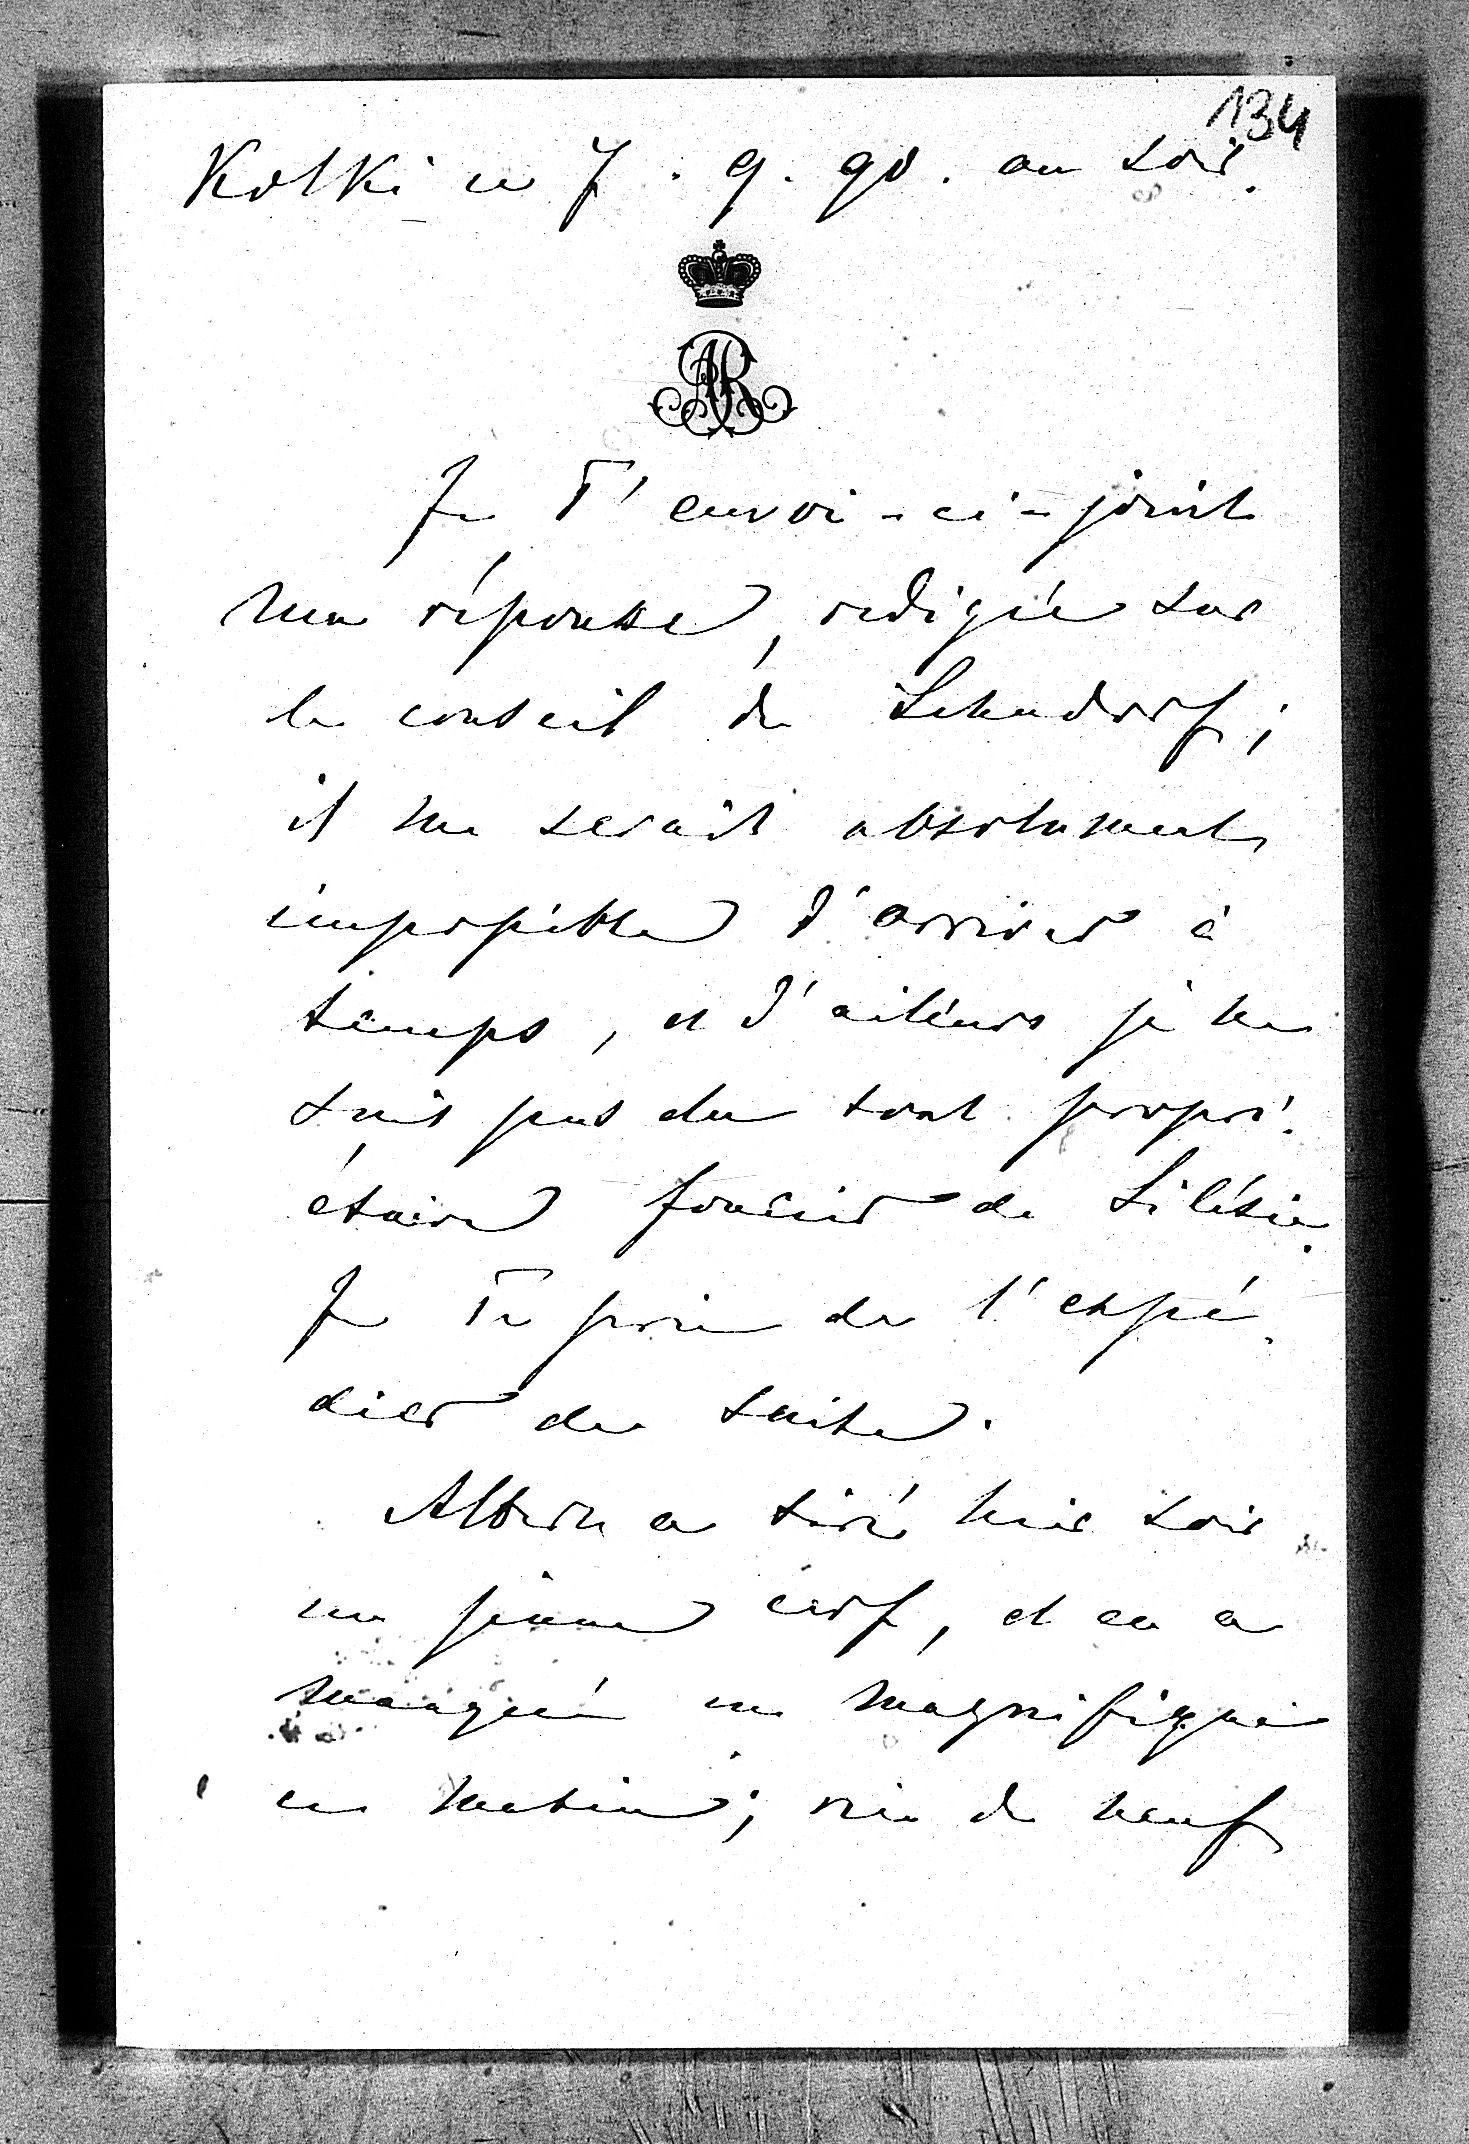 134
Kolki ce 7. 9. 90. au soir.
AR
Je T'envoi-ci-joint
ma réponse, redigée sur
le conseil de Lehndorf;
il me serait absolument
impossible d'arriver à
temps, et d'ailleurs je ne
suis pas du tout propri-
étaire foncier de Silésie.
Je Te prie de l'expé-
dier de suite.
Albin a tiré hier soir
un jeune cerf, et en a
manqué un magnifique
ce matin; rien de neuf